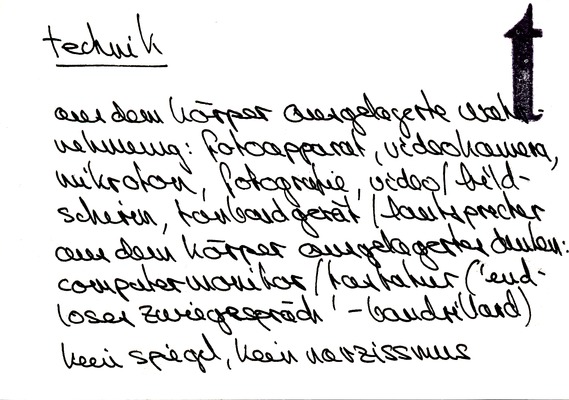 technik
t
aus dem körper ausgelagerte wahr-
nehmung: fotoapparat, videokamera,
mikrofon, fotografie, video/bild-
schirm, tonbandgerät/lautsprecher
aus dem körper ausgelagertes denken:
computermonitor/tastatur ('end-
loses zwiegespräch' - baudrillard)
kein spiegel, kein narzissmus